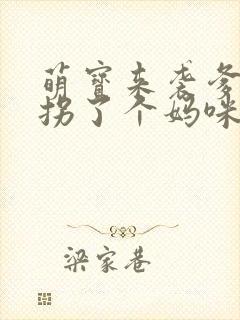 萌宝来袭爹
拐了个妈咪
梁家巷